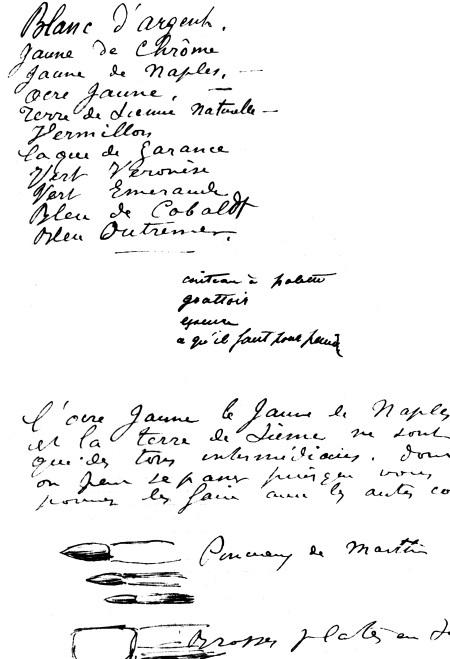 Blanc d'argent.
Jaune de Chrôme
Jaune de Naples. —
Ocre Jaune. —
Terre de Sienne Naturelle —
Vermillon
Laque de Garance
Vert Véronèse
Vert Emeraude
Bleu de Cobaldt
Bleu Outremer.
couteau à palette
grattoir
essence
ce qu'il faut pour peindre
L'ocre Jaune le Jaune de Naples
et la terre de Sienne ne sont
que des tons intermédiaires. dont
on peut se passer puisque vous
pouvez les faire avec les autres co
Pinceaux de Marttre
Brosses plates en